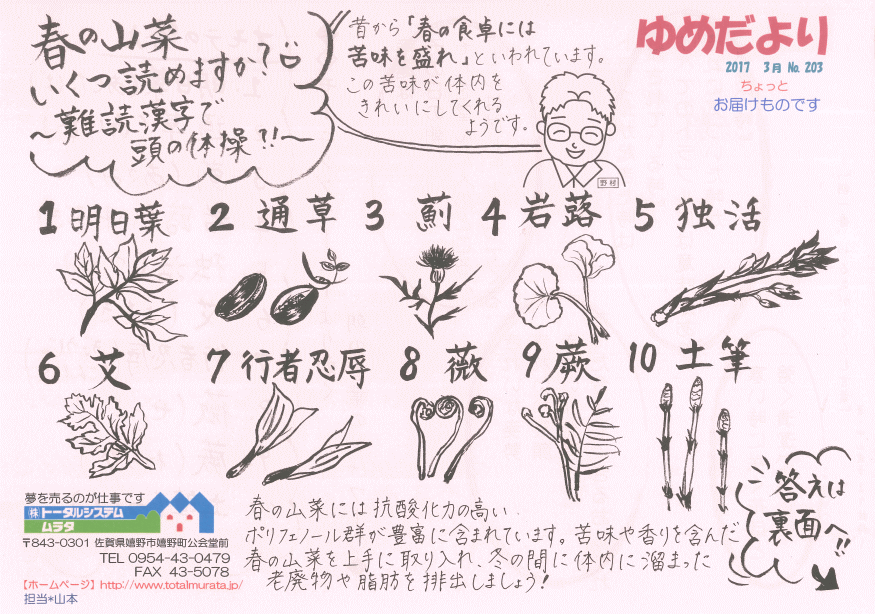 春の山菜
いくつ読めますか?
～難読漢字で
頭の体操?!～
昔から「春の食卓には
苦味を盛れ」といわれています。
この苦味が体内を
きれいにしてくれる
ようです。
野村
ゆめだより
2017 3月 No. 203
ちょっと
お届けものです
1 明日葉 2 通草 3 薊 4 岩蕗 5 独活
6 艾 7 行者忍辱 8 薇 9 蕨 10 土筆
夢を売るのが仕事です
㈱トータルシステム
ムラタ
〒843-0301 佐賀県嬉野市嬉野町公会堂前
TEL 0954-43-0479
FAX 43-5078
【ホームページ】http://www.totalmurata.jp/
担当*山本
春の山菜には抗酸化力の高い
ポリフェノール群が豊富に含まれています。苦味や香りを含んだ
春の山菜を上手に取り入れ、冬の間に体内に溜まった
老廃物や脂肪を排出しましょう!
答えは
裏面へ!!